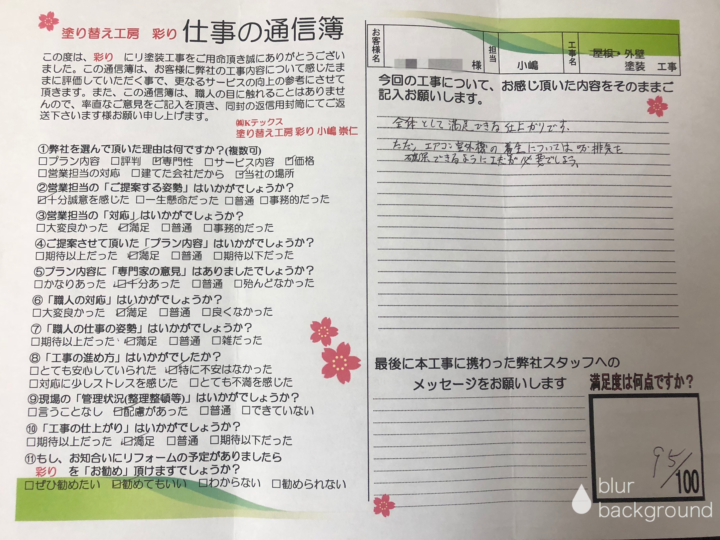 塗り替え工房 彩り 仕事の通信簿
この度は、彩り にリ塗装工事をご用命頂き誠にありがとうござい
ました。この通信簿は、お客様に弊社の工事内容について感じたま
まに評価していただく事で、更なるサービスの向上の参考にさせて
頂きます。また、この通信簿は、職人の目に触れることはありませ
んので、率直なご意見をご記入を頂き、同封の返信用封筒にてご返
送下さいます様お願い申し上げます。
㈱Kテックス
塗り替え工房 彩り 小嶋 崇仁
①弊社を選んで頂いた理由は何ですか?(複数可)
□プラン内容 □評判 ☑専門性 □サービス内容 ☑価格
□営業担当の対応 □建てた会社だから ☑当社の場所
②営業担当の「ご提案する姿勢」はいかがでしょうか?
☑十分誠意を感じた □一生懸命だった □普通 □事務的だった
③営業担当の「対応」はいかがでしょうか?
□大変良かった ☑満足 □普通 □事務的だった
④ご提案させて頂いた「プラン内容」はいかがでしょうか?
□期待以上だった ☑満足 □普通 □期待以下だった
⑤プラン内容に「専門家の意見」はありましたでしょうか?
□かなりあった ☑十分あった □普通 □殆んどなかった
⑥「職人の対応」はいかがでしょうか?
□大変良かった ☑満足 □普通 □良くなかった
⑦「職人の仕事の姿勢」はいかがでしょうか?
□期待以上だった ☑満足 □普通 □雑だった
⑧「工事の進め方」はいかがでしたか?
□とても安心していられた ☑特に不安はなかった
□対応に少しストレスを感じた □とても不満を感じた
⑨現場の「管理状況(整理整頓等)」はいかがでしょうか?
□言うことなし ☑配慮があった □普通 □できていない
⑩「工事の仕上がり」はいかがでしょうか?
□期待以上だった ☑満足 □普通 □期待以下だった
⑪もし、お知合いにリフォームの予定がありましたら
彩り を「お勧め」頂けますでしょうか?
□ぜひ勧めたい ☑勧めてもいい □わからない □勧められない
お客様名 様 担当 小嶋 工事名 屋根・外壁
塗装 工事
今回の工事について、お感じ頂いた内容をそのままご
記入お願いします。
全体として満足できる仕上がりです。
ただ、エアコン室外機の養生については吸排気を
確保できるように工夫が必要でしょう。
最後に本工事に携わった弊社スタッフへの
メッセージをお願いします
満足度は何点ですか?
95/100
blur
background